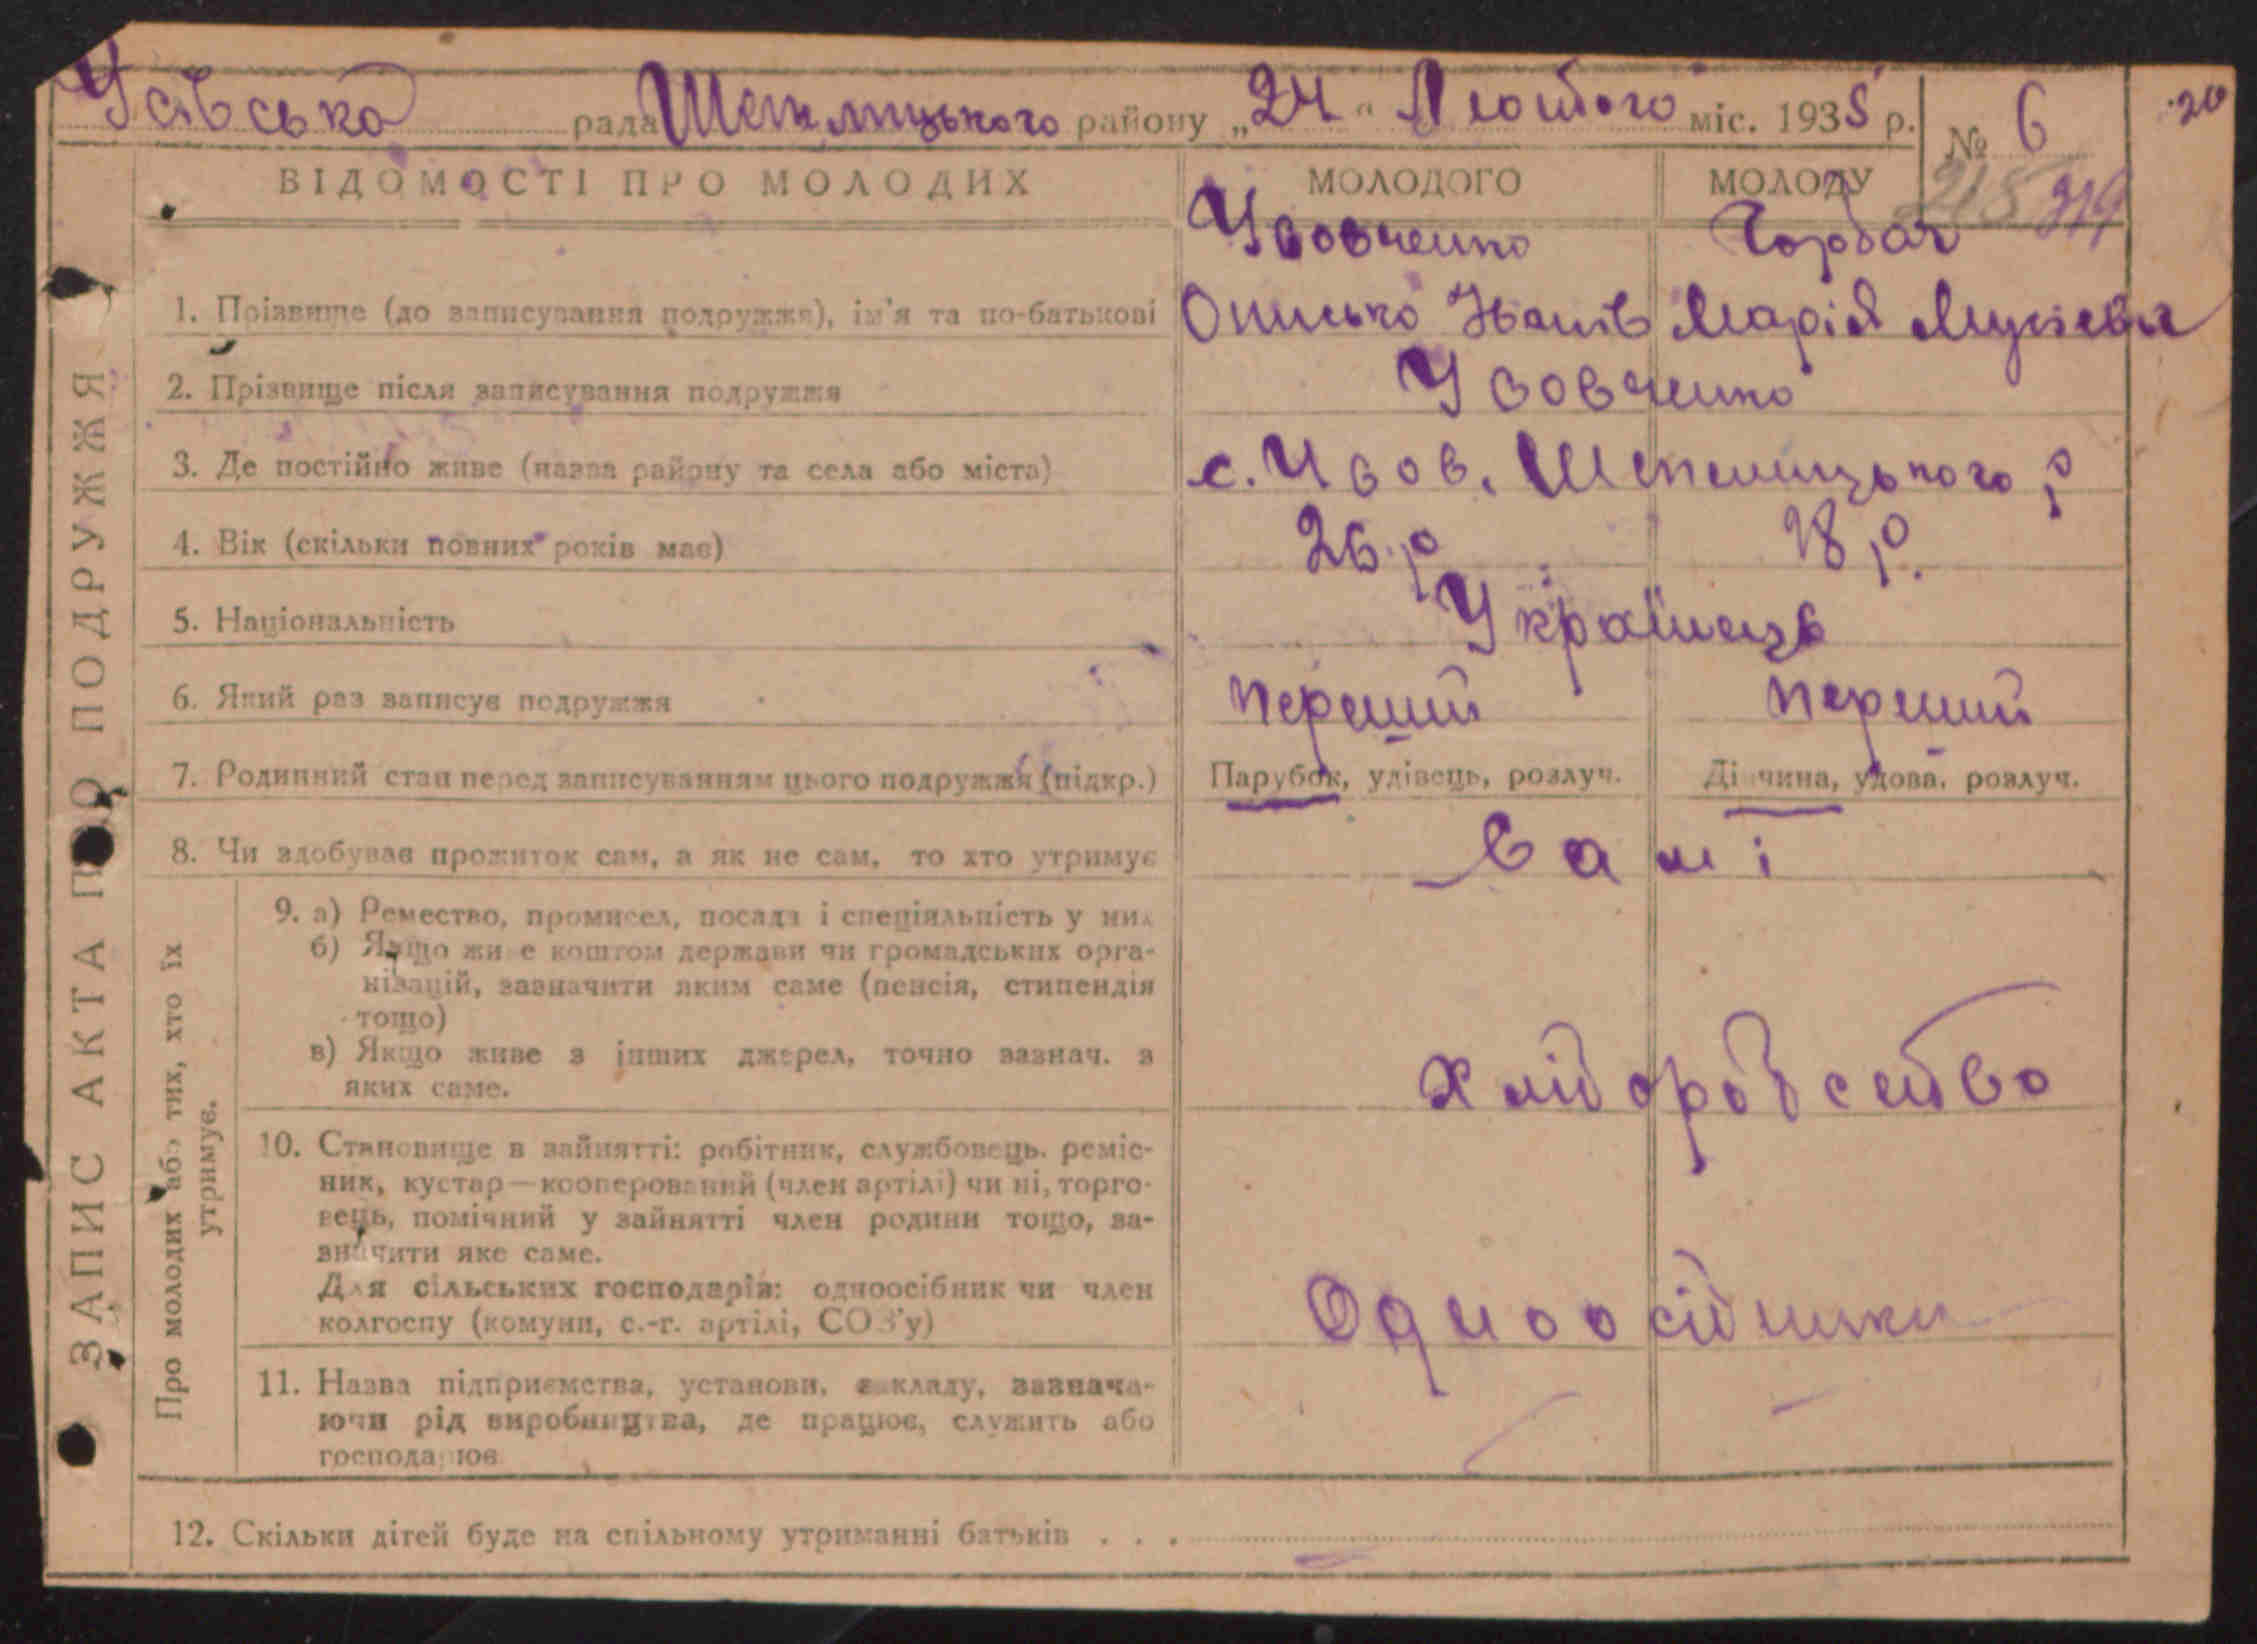 Усівська рада Шепелицького району „24“ Лютого міс. 1935 р.
№ 6
20
ВІДОМОСТІ ПРО МОЛОДИХ МОЛОДОГО МОЛОДУ
215 319
Усовченко Горбач
1. Прізвище (до записування подружжя), ім'я та по-батькові Онисько Іванів Марія Мусієва
2. Прізвище після записування подружжя Усовченко
3. Де постійно живе (назва району та села або міста) с. Усов. Шепелицького р
4. Вік (скільки повних років має) 26 р. 18 р.
5. Національність Українець
6. Який раз записує подружжя перший перший
7. Родинний стан перед записуванням цього подружжя (підкр.) Парубок, удівець, розлуч. Дівчина, удова, розлуч.
8. Чи здобував прожиток сам, а як не сам, то хто утримує Самі
9. а) Ремество, промисел, посада і спеціяльність у них
б) Якщо живе коштом держави чи громадських орга-
нізацій, зазначити яким саме (пенсія, стипендія
тощо)
в) Якщо живе з інших джерел, точно зазнач. з
яких саме.
хліборобство
10. Становище в зайнятті: робітник, службовець, реміс-
ник, кустар—кооперований (член артілі) чи ні, торго-
вець, помічний у зайнятті член родини тощо, за-
значити яке саме.
Для сільських господарів: одноосібник чи член
колгоспу (комуни, с.-г. артілі, СОЗ'у)
Одноосібники
11. Назва підприємства, установи, закладу, зазнача-
ючи рід виробництва, де працює, служить або
господарює
12. Скільки дітей буде на спільному утриманні батьків . . .
ЗАПИС АКТА ПРО ПОДРУЖЖЯ
Про молодих або тих, хто їх
утримує.